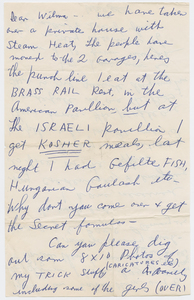 Dear Wilma - we have taken
over a private house with
Steam Heat, the people have
moved to the 2 garages, heres
the punch line I eat at the
BRASS RAIL Rest. in the
American Pavillion but at
the ISRAELI pavillion I
get KOSHER meals, last
night I had Gefilte FISH,
Hungarian Goulash etc
Why don't you come over & get
the Secret formulas -
Can you please dig
out som 8x10 Photos of
my TRICK STUFF (CARICATURES etc)
including some of the girls (OVER)